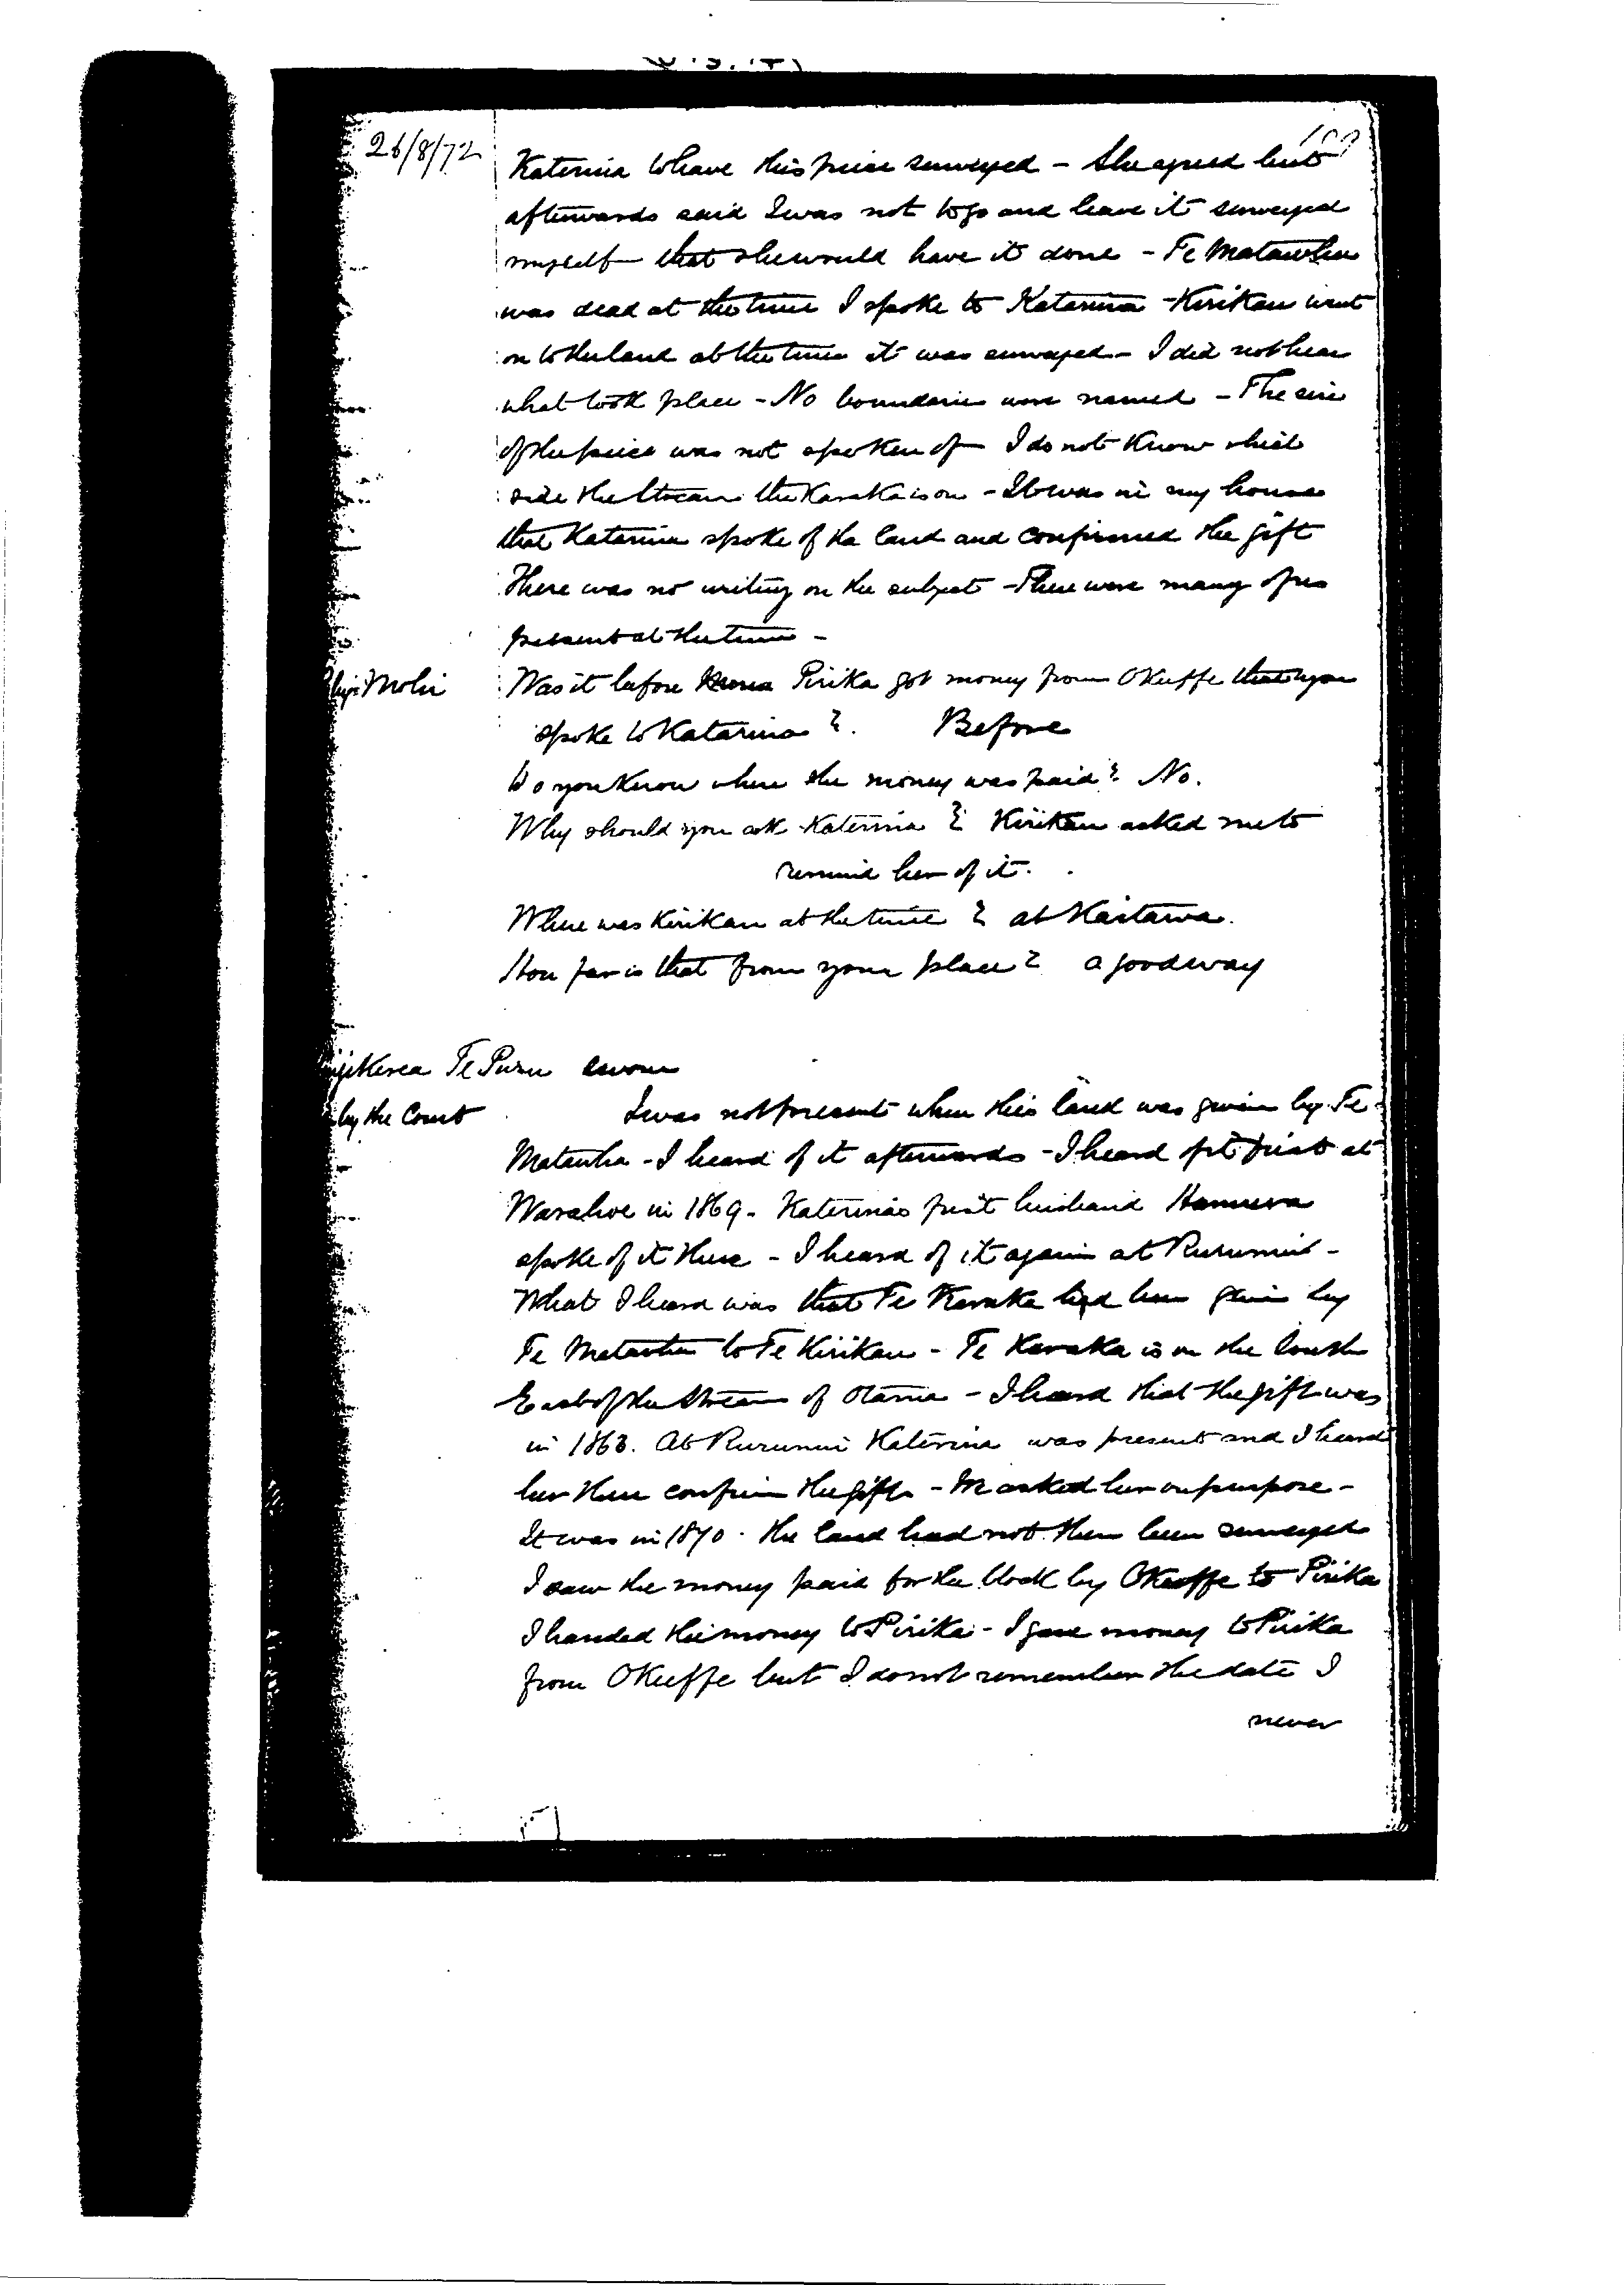 26/8/72
Katerina to have this piece surveyed - She agreed but
afterwards said I was not to go and have it surveyed
myself that she would have it done - Te Matawha
was dead at the time I spoke to Katarina - Kirikau went
on to the land at the time it was surveyed - I did not hear
what took place - No boundaries were named - The size
of the piece was not spoken of I do not know which
side the Stream the Karaka is on - It was in my house
that Katarina spoke of the land and confirmed the gift
There was no writing on the subject - There were many of us
present at the time -
Mohi Was it before Pirika got money from OKeeffe that you
spoke to Katarina ?. Before
Do you know where the money was paid? No.
Why should you ask Katerina ? Kirikau asked me to
remind her of it.
Where was Kirikau at the time ? at Kaitawa.
How far is that from your place ? a good way
Te Puru sworn
by the Court I was not present when this land was given by Te
Matawha - I heard of it afterwards - I heard of it first at
in 1869. Katerina's first husband Hamuera
spoke of it there - I heard of it again at Rurumui -
What I heard was that Te Karaka had been given by
Te Matawha to Te Kirikau - Te Karaka is on the South
East of the Stream of - I heard that the gift was
in 1863. At Rurumui Katerina was present and I heard
her there confirm the gift - We asked her on purpose -
It was in 1870. the land had not then been surveyed
I saw the money paid for the block by OKeeffe to Pirika
I handed the money to Pirika - I gave money to Pirika
from OKeeffe but I do not remember the date I
never